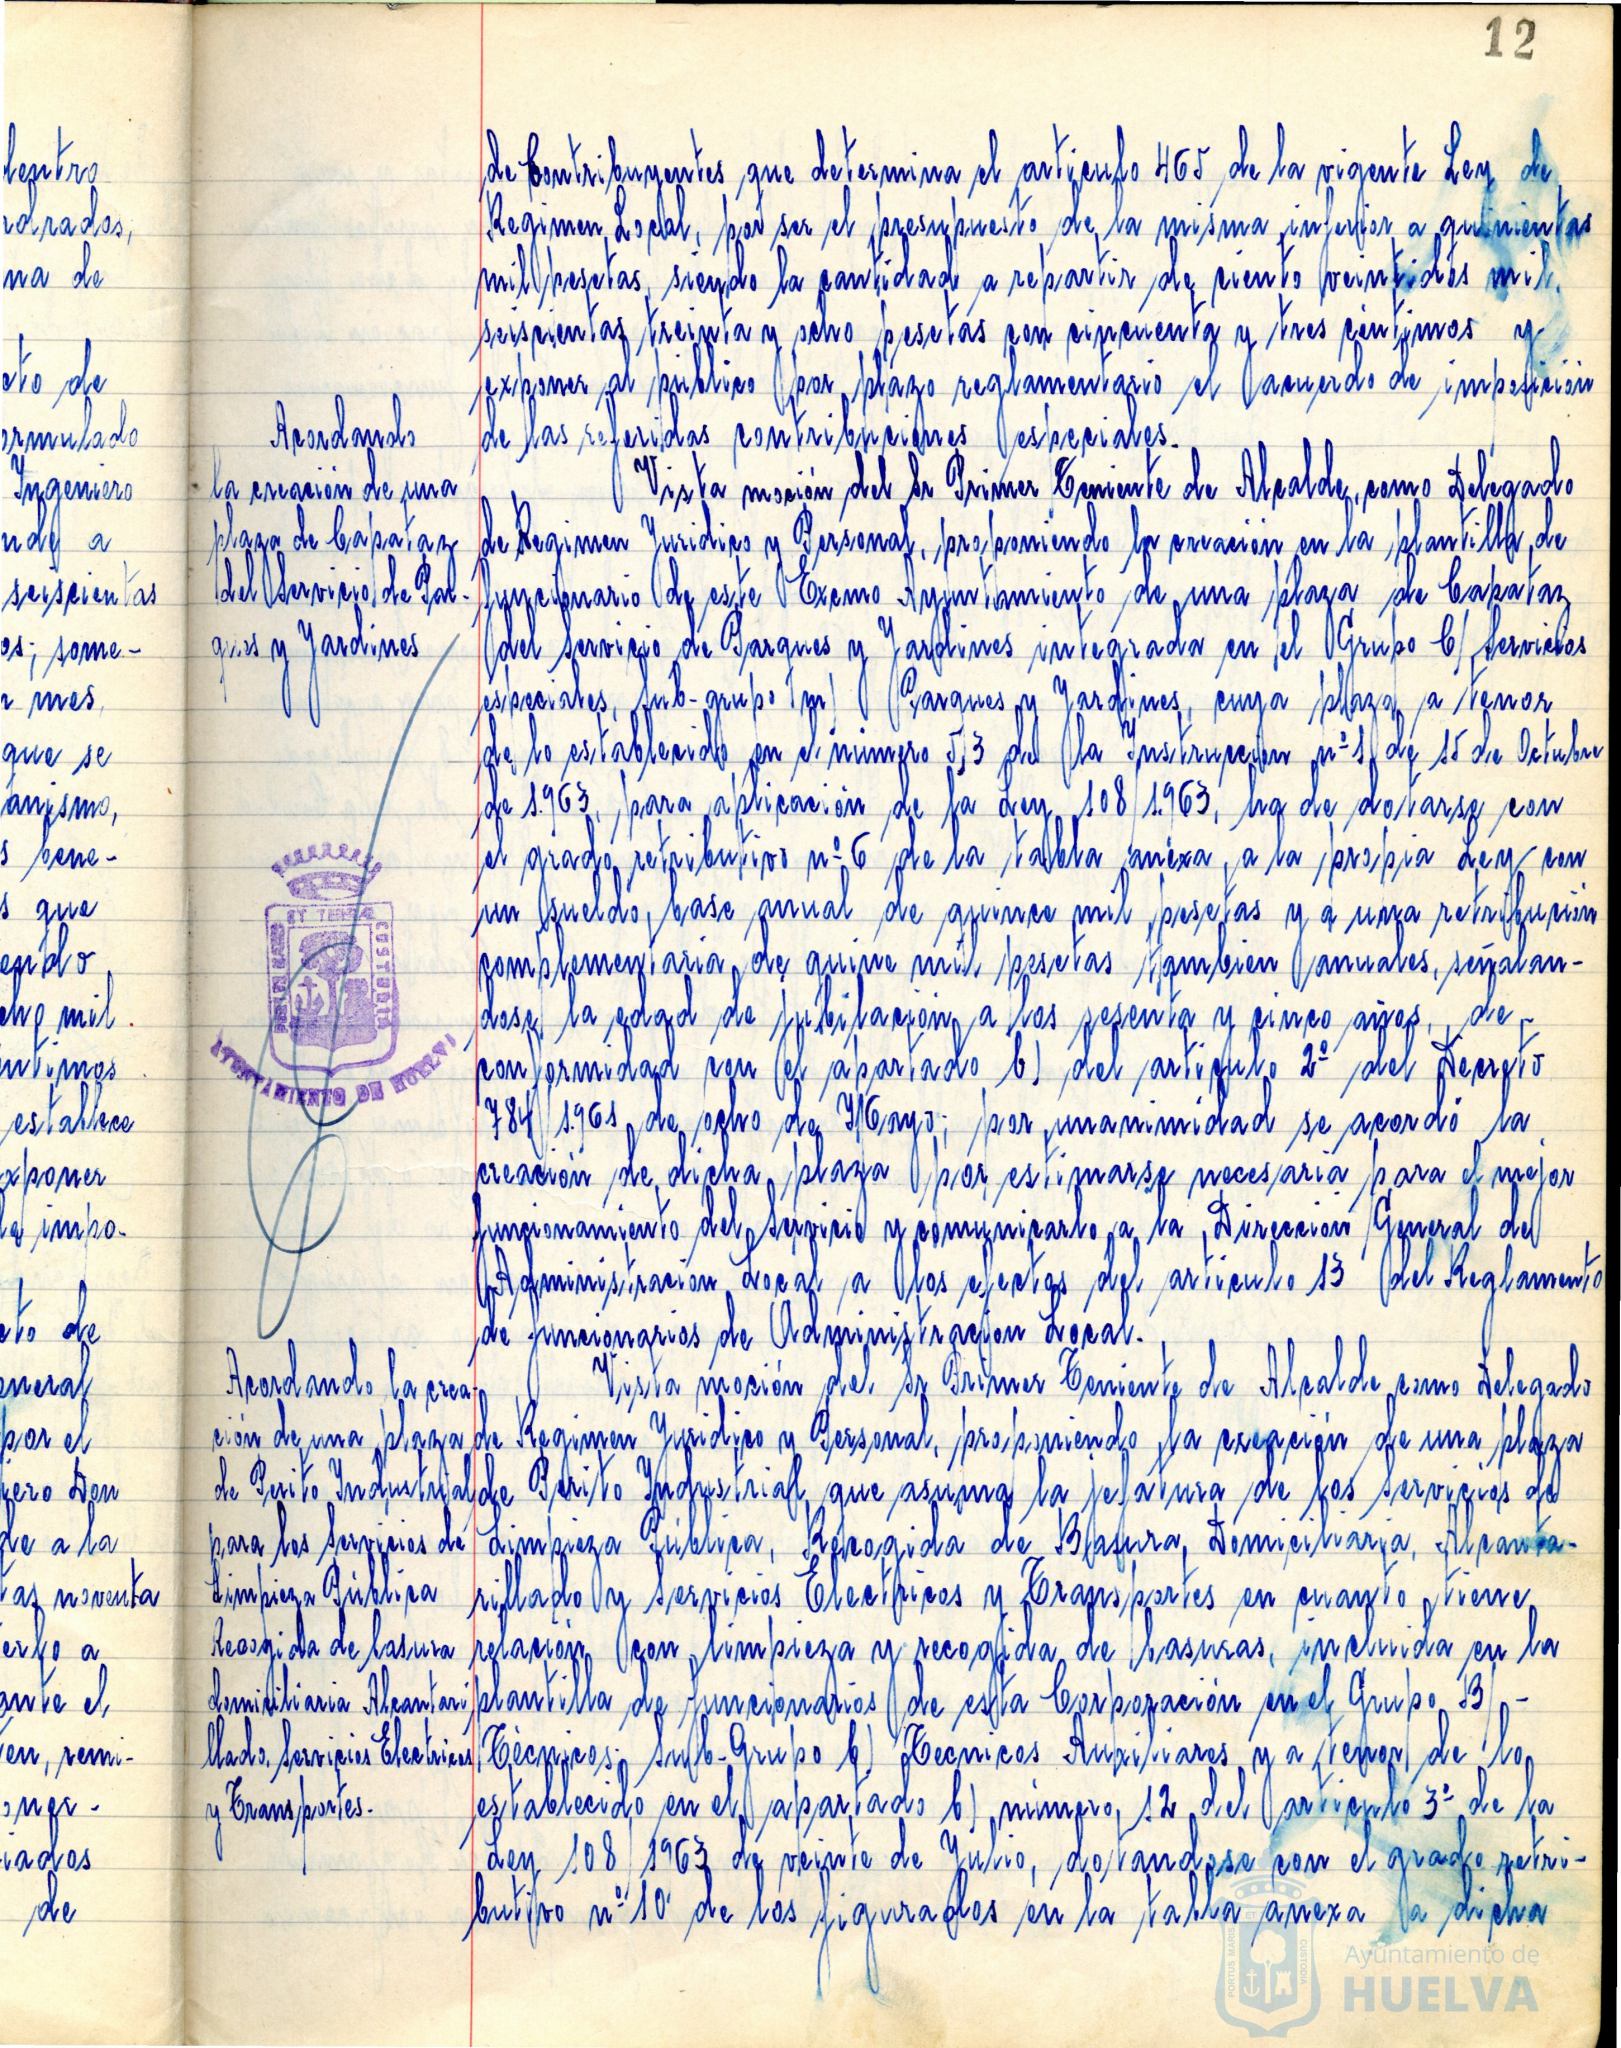 12
lentro
rdrados,
na de
cto de
ormulado
Ingeniero
nde a
seiscientas
os; some-
r mes
que se
anismo,
s bene-
s que
endo
cho mil
ntimos
establece
xponer
la impo-
cto de
eneral
por el
iero Don
de a la
tas noventa
erfo a
ante el
en, remi-
oner-
iados
de
de Contribuyentes que determina el artículo 465 de la vigente Ley de
Regimen Local, por ser el presupuesto de la misma inferior a quinientas
mil pesetas, siendo la cantidad a repartir de ciento veintidos mil
seiscientas treinta y ocho pesetas con cincuenta y tres céntimos y
exponer al público por plazo reglamentario el acuerdo de imposición
de las referidas contribuciones especiales.
Acordando
la creación de una
plaza de Capataz
del Servicio de Par-
ques y Jardines
Vista moción del Sr Primer Teniente de Alcalde, como Delegado
de Regimen Juridico y Personal, proponiendo la creación en la plantilla de
funcionario de este Excmo Ayuntamiento de una plaza de Capataz
del Servicio de Parques y Jardines integrada en el Grupo C) Servicios
especiales, Sub-grupo m) Parques y Jardines, cuya plaza a tenor
de lo establecido en el número 5,3 de la Instrucción nº 1 de 15 de Octubre
de 1.963, para aplicación de la Ley 108/1.963, ha de dotarse con
el grado retributivo nº 6 de la tabla anexa a la propia Ley con
un sueldo base anual de quince mil pesetas y a una retribución
complementaria de quine mil pesetas tambien anuales, señalan-
dose la edad de jubilación a los sesenta y cinco años, de
conformidad con el apartado b) del articulo 2º del Decreto
784/1.961 de ocho de Mayo; por unanimidad se acordó la
creación de dicha plaza por estimarse necesaria para el mejor
funcionamiento del Servicio y comunicarlo a la Dirección General de
Administración Local a los efectos del articulo 13 del Reglamento
de funcionarios de Administración Local.
ET TERRAE
CUSTODIA
AYUNTAMIENTO DE HUELVA
Acordando la crea-
ción de una plaza
de Perito Industrial
para los Servicios de
Limpieza Pública
Recogida de basura
domiciliaria Alcantari
llado, Servicios Electricos
y Transportes.
Vista moción del Sr Primer Teniente de Alcalde como Delegado
de Regimen Juridico y Personal, proponiendo la creación de una plaza
de Perito Industrial que asuma la jefatura de los servicios de
Limpieza Pública, Recogida de Basura, Domiciliaria, Alcanta-
rillado y Servicios Electricos y Transportes en cuanto tiene
relación con limpieza y recogida de basuras, incluida en la
plantilla de funcionarios de esta Corporación en el Grupo B) -
Técnicos; Sub-Grupo b) Tecnicos Auxiliares y a tenor de lo
establecido en el apartado b) número 12 del articulo 3º de la
Ley 108/1963 de veinte de Julio, dotandose con el grado retri-
butivo nº 10 de los figurados en la tabla anexa a dicha
PORTUS MARIS ET CUSTODIA
Ayuntamiento de
HUELVA